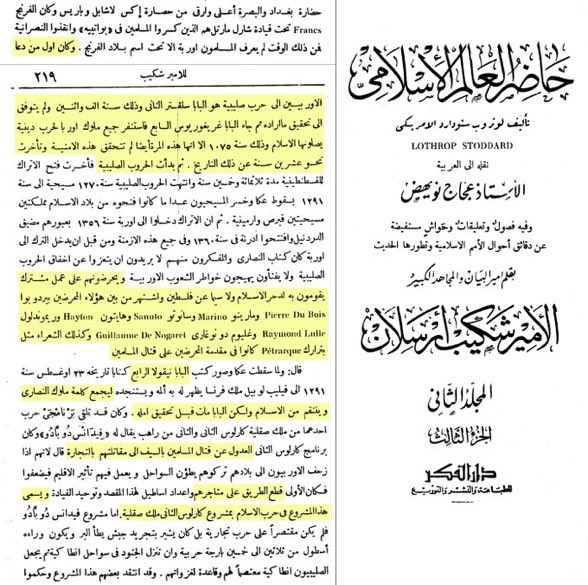 حضارة بغداد والبصرة أعلى وأرقى من حضارة إكس لاشابل وباريس وكان الفرنج
Francs تحت قيادة شارل مارتل هم الذين كسروا المسلمين في «بواتييه» وانقذوا النصرانية
فمن ذلك الوقت لم يعرف المسلمون اوربة الا تحت اسم بلاد الفرنج. وكان اول من دعا
للامير شكيب ٢١٩
الاوربيين الى حرب صليبية هو البابا سلفستر الثاني وذلك سنة الف واثنتين ولم يتوفق
الى تحقيق ما اراده ثم جاء البابا غريغور يوس السابع فاستنفر جميع ملوك اوربا لحرب دينية
يصلونها الاسلام وذلك سنة ١٠٧٥ الا انها هذه المرة أيضا لم تتحقق هذه الامنية وتأخرت
نحو عشرين سنة عن ذلك التاريخ. ثم بدأت الحروب الصليبية فأخرت فتح الاتراك
للقسطنطينية مدة ثلاثمائة وخمسين سنة وانتهت الحروب الصليبية سنة ١٢٧٠ مسيحية الى سنة
١٢٩١ بسقوط عكا وخسر المسيحيون عدا ما كانوا فتحوه من بلاد الاسلام مملكتين
مسيحيتين قبرص وارمينية. ثم ان الاتراك دخلوا الى اوربة سنة ١٣٥٦ بعبورهم مضيق
الدردنيل وافتتحوا أدرنة في سنة ١٣٦٠ وفي جميع هذه الازمنة ومن قبل ان يدخل الترك الى
اوربة كان كتاب النصارى والمفكرون منهم لا يريدون ان يتعزوا عن اخفاق الحروب
الصليبية ولا يفتأون يهيجون خواطر الشعوب الاوربية ويحرضونهم على عمل مشترك
يقومون به لدحر الاسلام ولا سيما عن فلسطين واشتهر من بين هؤلاء المحرضين بيردوبوا
Pierre Du Bois ومارينو Marino وسانوتو Sanuto وهايتون Hayton وريموندلول
Raymond Lulle وغليوم دو نوغارى Guillaume De Nogaret وكذلك الشعراء مثل
بترارك Pétrarque كانوا في مقدمة المحرضين على قتال المسلمين
قال: ولما سقطت عكا وصور كتب البابا نيقولا الرابع كتابا تاريخه ٢٣ اوغسطس سنة
١٢٩١ الى فيليب لوبيل ملك فرنسا يظهر له به أله ويستنجده ليجمع كلمة ملوك النصارى
وينتقم من الاسلام ولكن البابا مات قبل تحقيق امله. وكان قد تلقى برنامجي حرب
احدهما من ملك صقلية كارلوس الثاني والثاني من راهب يقال له «فيدانس دو بادو» وكان
برنامج كارلوس الثاني العدول عن قتال المسلمين بالسيف الى مقاتلتهم بالتجارة قال لانهم اذا
زحف الاوربيون الى بلادهم تركوهم يطؤن السواحل ويعمل فيهم تأثير الاقليم فيضعفوا
فكان الأولى قطع الطريق على متاجرهم واعداد اساطيل لهذا المقصد وتوحيد القيادة ويسمى
هذا المشروع في حرب الاسلام بمشروع كارلوس الثاني ملك صقلية. اما مشروع فيدانس دو بادو
فلم يكن مقتصراً على حرب تجارية بل كان يشير بتجريد جيش يطأ البر ويكون وراءه
أسطول من ثلاثين الى خمسين بارجة حربية وان تنزل الجنود في سواحل انطاكية ثم يجعل
الصليبيون انطاكية معتصماً لهم وقاعدة لغزواتهم. وقد انتقد بعضهم هذا المشروع وحكموا
حاضر العالم الإسلامي
تأليف لوثروب ستودارد الأمريكي
LOTHROP STODDARD
نقله الى العربية
الأستاذ عجاج نويهض
وفيه فصول وتعليقات وحواش مستفيضة
عن دقائق أحوال الأمم الاسلامية وتطورها الحديث
بقلم امير البيان والمجاهد الكبير
الأمير شكيب أرسلان
المجلد الثاني
الجزء الثالث
دار الفكر
للطباعة والنشر والتوزيع